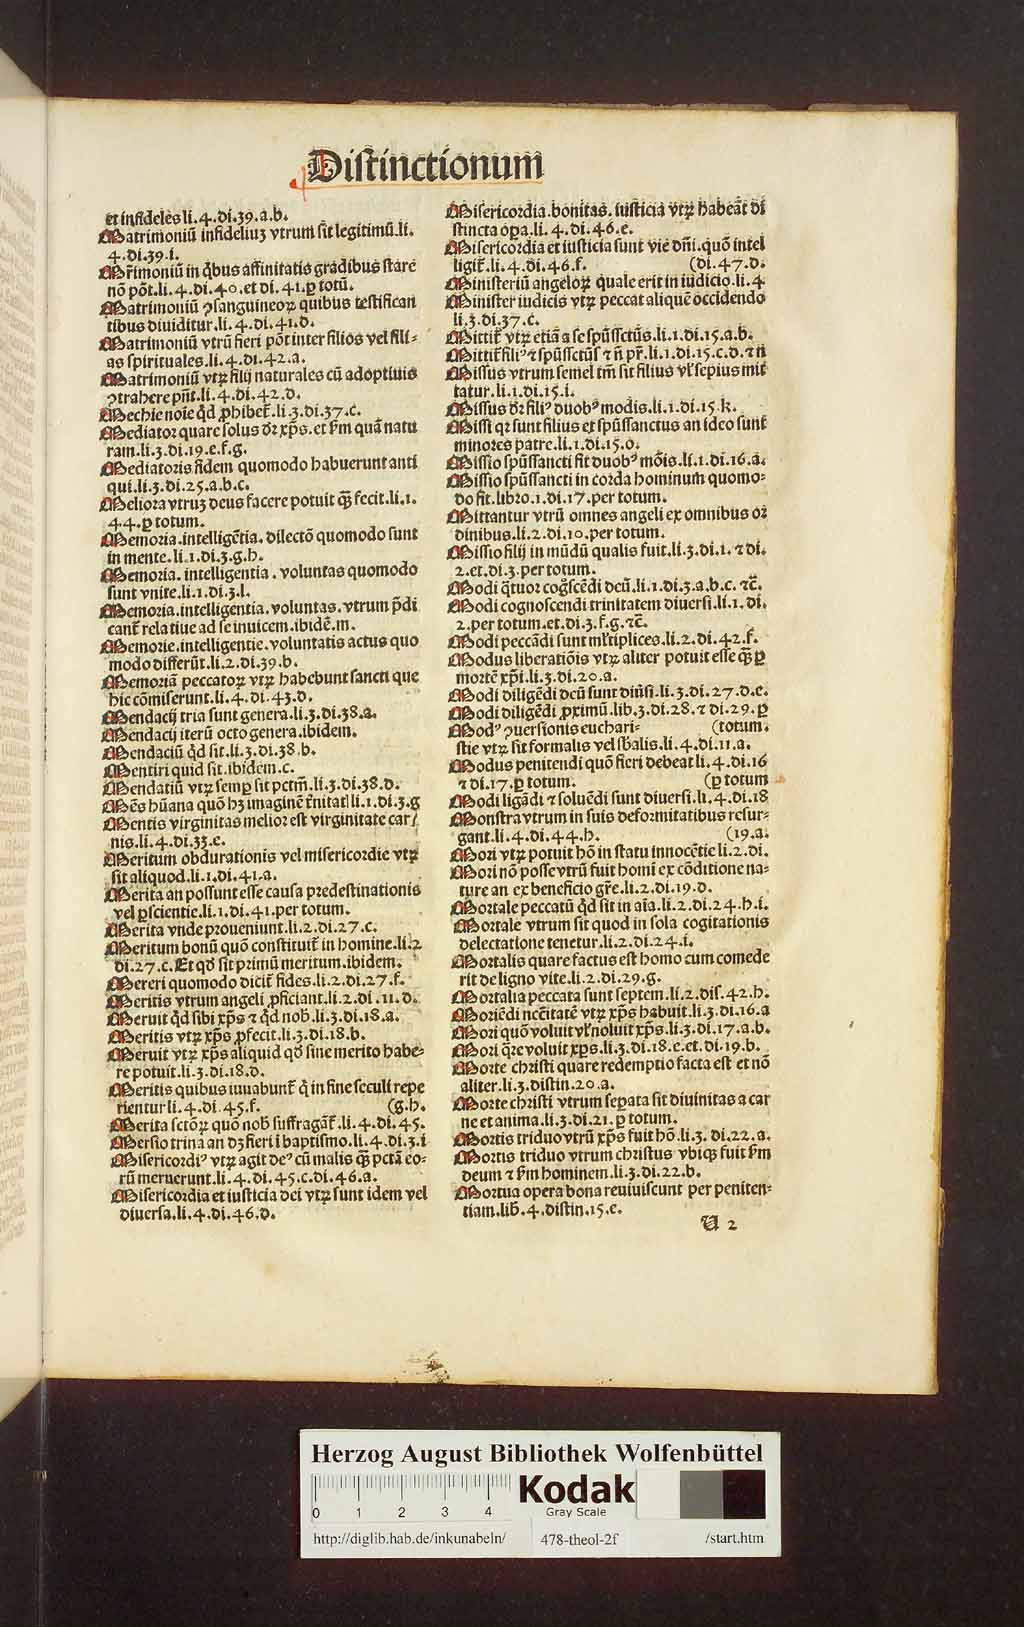 Distinctionum
et infideles li.4.di.39.a.b.
Matrimoniū infideliuꝫ vtrum sit legitimū.li.
4.di.39.i.
Mr̄imoniū in q̄bus affinitatis gradibus stare
nō pōt.li.4.di.40.et di.41.ꝑ totū.
Matrimoniū ꝯsanguineoꝝ quibus testifican
tibus diuiditur.li.4.di.41.d.
Matrimoniū vtrū fieri pōt inter filios vel fili-
as spirituales.li.4.di.42.a.
Matrimoniū vtꝝ filij naturales cū adoptiuis
ꝯtrahere pn̄t.li.4.di.42.d.
Mechie noīe qd̄ ꝓhibet̄.li.3.di.37.c.
Mediator quare solus dr̄ xp̄s.et ẜm quā natu
ram.li.3.di.19.e.f.g.
Mediatoris fidem quomodo habuerunt anti
qui.li.3.di.25.a.b.c.
Meliora vtruꝫ deus facere potuit qꝫ̄ fecit.li.1.
44.ꝑ totum.
Memoria.intelligētia.dilectō quomodo sunt
in mente.li.1.di.3.g.h.
Memoria.intelligentia.voluntas quomodo
sunt vnite.li.1.di.3.l.
Memoria.intelligentia.voluntas.vtrum p̄di
cant̄ relatiue ad se inuicem.ibidē.m.
Memorie.intelligentie.voluntatis actus quo
modo differūt.li.2.di.39.b.
Memoriā peccatoꝝ vtꝝ habebunt sancti que
hic cōmiserunt.li.4.di.43.d.
Mendacij tria sunt genera.li.3.di.38.a.
Mendacij iterū octo genera.ibidem.
Mendaciū qd̄ sit.li.3.di.38.b.
Mentiri quid sit.ibidem.c.
Mendatiū vtꝝ semꝑ sit pctm̄.li.3.di.38.d.
Mēs hūana quō hꝫ imaginē t̄nitat̄ li.1.di.3.g
Mentis virginitas melior est virginitate car/
nis.li.4.di.33.e.
Meritum obdurationis vel misericordie vtꝝ
sit aliquod.li.1.di.41.a.
Merita an possunt esse causa predestinationis
vel p̄scientie.li.1.di.41.per totum.
Merita vnde proueniunt.li.2.di.27.c.
Meritum bonū quō constituit̄ in homine.li.2
di.27.c.Et qd̓ sit primū meritum.ibidem.
Mereri quomodo dicit̄ fides.li.2.di.27.f.
Meritis vtrum angeli ꝓficiant.li.2.di.11.d.
Meruit qd̄ sibi xp̄s ⁊ qd̄ nob̄.li.3.di.18.a.
Meritis vtꝝ xp̄s ꝓfecit.li.3.di.18.b.
Meruit vtꝝ xp̄s aliquid qd̓ sine merito habe-
re potuit.li.3.di.18.d.
Meritis quibus iuuabunt̄ q̄ in fine seculi repe
rientur li.4.di.45.f. (g.h.
Merita sctōꝝ quō nob̄ suffragāt̄.li.4.di.45.
Mersio trina an dꝫ fieri i baptismo.li.4.di.3.i
Misericordiꝰ vtꝝ agit deꝰ cū malis qꝫ̄ pctā eo-
rū meruerunt.li.4.di.45.c.di.46.a.
Misericordia et iusticia dei vtꝝ sunt idem vel
diuersa.li.4.di.46.d.
Misericordia.bonitas.iusticia vtꝝ habeāt di
stincta oꝑa.li.4.di.46.e.
Misericordia et iusticia sunt vie dn̄i.quō intel
ligit̄.li.4.di.46.f. (di.47.d.
Ministeriū angeloꝝ quale erit in iudicio.li.4
Minister iudicis vtꝝ peccat aliquē occidendo
li.3.di.37.c.
Mittit̄ vtꝝ etiā a se spūssctūs.li.1.di.15.a.b.
Mittit̄ filiꝰ ⁊ spūssctūs ⁊ n̄ pr̄.li.1.di.15.c.d.⁊ n
Missus vtrum semel tm̄ sit filius vl̓ sepius mit
tatur.li.1.di.15.i.
Missus dr̄ filiꝰ duobꝰ modis.li.1.di.15.k.
Missi qr̄ sunt filius et spūssanctus an ideo sunt
minores patre.li.1.di.15.o.
Missio spūssancti fit duobꝰ mōis.li.1.di.16.a.
Missio spūssancti in corda hominum quomo-
do fit.libro.1.di.17.per totum.
Mittantur vtrū omnes angeli ex omnibus or
dinibus.li.2.di.10.per totum.
Missio filij in mūdū qualis fuit.li.3.di.1.⁊ di.
2.et.di.3.per totum.
Modi q̄tuor cog̓scēdi deū.li.1.di.3.a.b.c.⁊c̄.
Modi cognoscendi trinitatem diuersi.li.1.di.
2.per totum.et.di.3.f.g.⁊c̄.
Modi peccādi sunt ml̓tiplices.li.2.di.42.f.
Modus liberatiōis vtꝝ aliter potuit esse qꝫ̄ ꝑ
mortē xp̄i.li.3.di.20.a.
Modi diligēdi deū sunt diūsi.li.3.di.27.d.e.
Modi diligēdi ꝓximū.lib.3.di.28.⁊ di.29.ꝑ
Modꝰ ꝯuersionis euchari- (totum.
stie vtꝝ sit formalis vel sb̄alis.li.4.di.11.a.
Modus penitendi quō fieri debeat li.4.di.16
⁊ di.17.ꝑ totum. (ꝑ totum
Modi ligādi ⁊ soluēdi sunt diuersi.li.4.di.18
Monstra vtrum in suis deformitatibus resur-
gant.li.4.di.44.h. (19.a.
Mori vtꝝ potuit hō in statu innocētie li.2.di.
Mori nō posse vtrū fuit homi ex cōditione na-
ture an ex beneficio gr̄e.li.2.di.19.d.
Mortale peccatū qd̄ sit in aīa.li.2.di.24.h.i.
Mortale vtrum sit quod in sola cogitationis
delectatione tenetur.li.2.di.24.i.
Mortalis quare factus est homo cum comede
rit de ligno vite.li.2.di.29.g.
Mortalia peccata sunt septem.li.2.dis.42.h.
Moriēdi ncc̄itatē vtꝝ xp̄s habuit.li.3.di.16.a
Mori quō voluit vl̓ noluit xp̄s.li.3.di.17.a.b.
Mori q̄re voluit xp̄s.li.3.di.18.e.et.di.19.b.
Morte christi quare redemptio facta est et nō
aliter.li.3.distin.20.a.
Morte christi vtrum seꝑata sit diuinitas a car
ne et anima.li.3.di.21.ꝑ totum.
Mortis triduo vtrū xp̄s fuit hō.li.3.di.22.a.
Mortis triduo vtrum christus vbiqꝫ fuit ẜm
deum ⁊ ẜm hominem.li.3.di.22.b.
Mortua opera bona reuiuiscunt per peniten-
tiam.lib.4.distin.15.e.
U 2
Herzog August Bibliothek Wolfenbüttel
0 1 2 3 4
Kodak
Gray Scale
http://diglib.hab.de/inkunabeln/ 478-theol-2f /start.htm